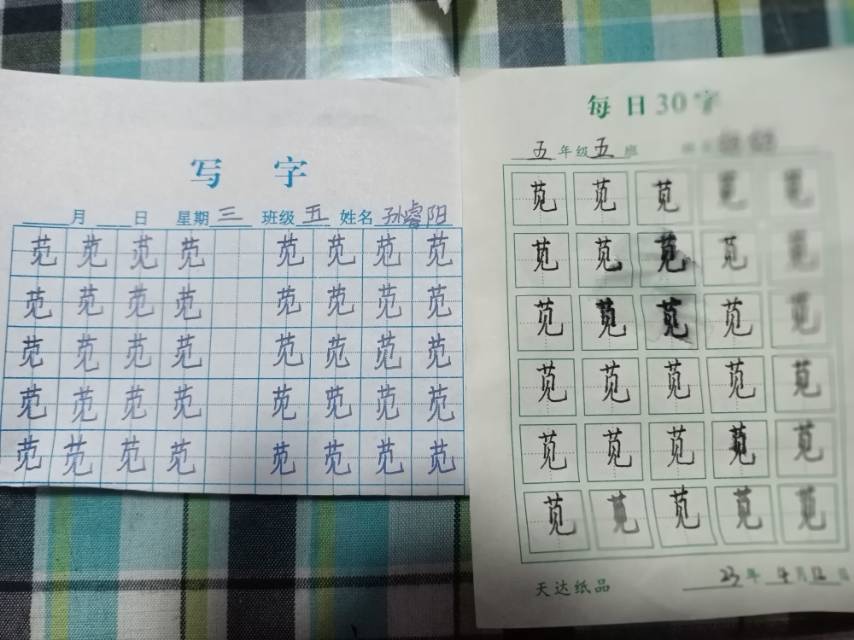 写 字
月 日 星期 三 班级 五 姓名 孙睿阳
苋 苋 苋 苋 苋 苋 苋 苋
苋 苋 苋 苋 苋 苋 苋 苋
苋 苋 苋 苋 苋 苋 苋 苋
苋 苋 苋 苋 苋 苋 苋 苋
苋 苋 苋 苋 苋 苋 苋 苋
每日30字
五 年级 五 班
苋 苋 苋 苋 苋
苋 苋 苋 苋 苋
苋 苋 苋 苋 苋
苋 苋 苋 苋 苋
苋 苋 苋 苋 苋
苋 苋 苋 苋 苋
天达纸品
23 年 4 月 12 日